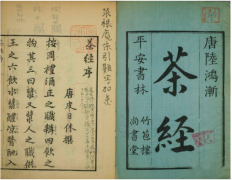 唐陸鴻漸
茶經
平安書林
竹苞樓
尚書堂
茶經序
唐皮日休撰
按周禮酒正之職辨四飲之
物其三曰漿又漿人之職供
王之六飲水漿醴涼醫酏入